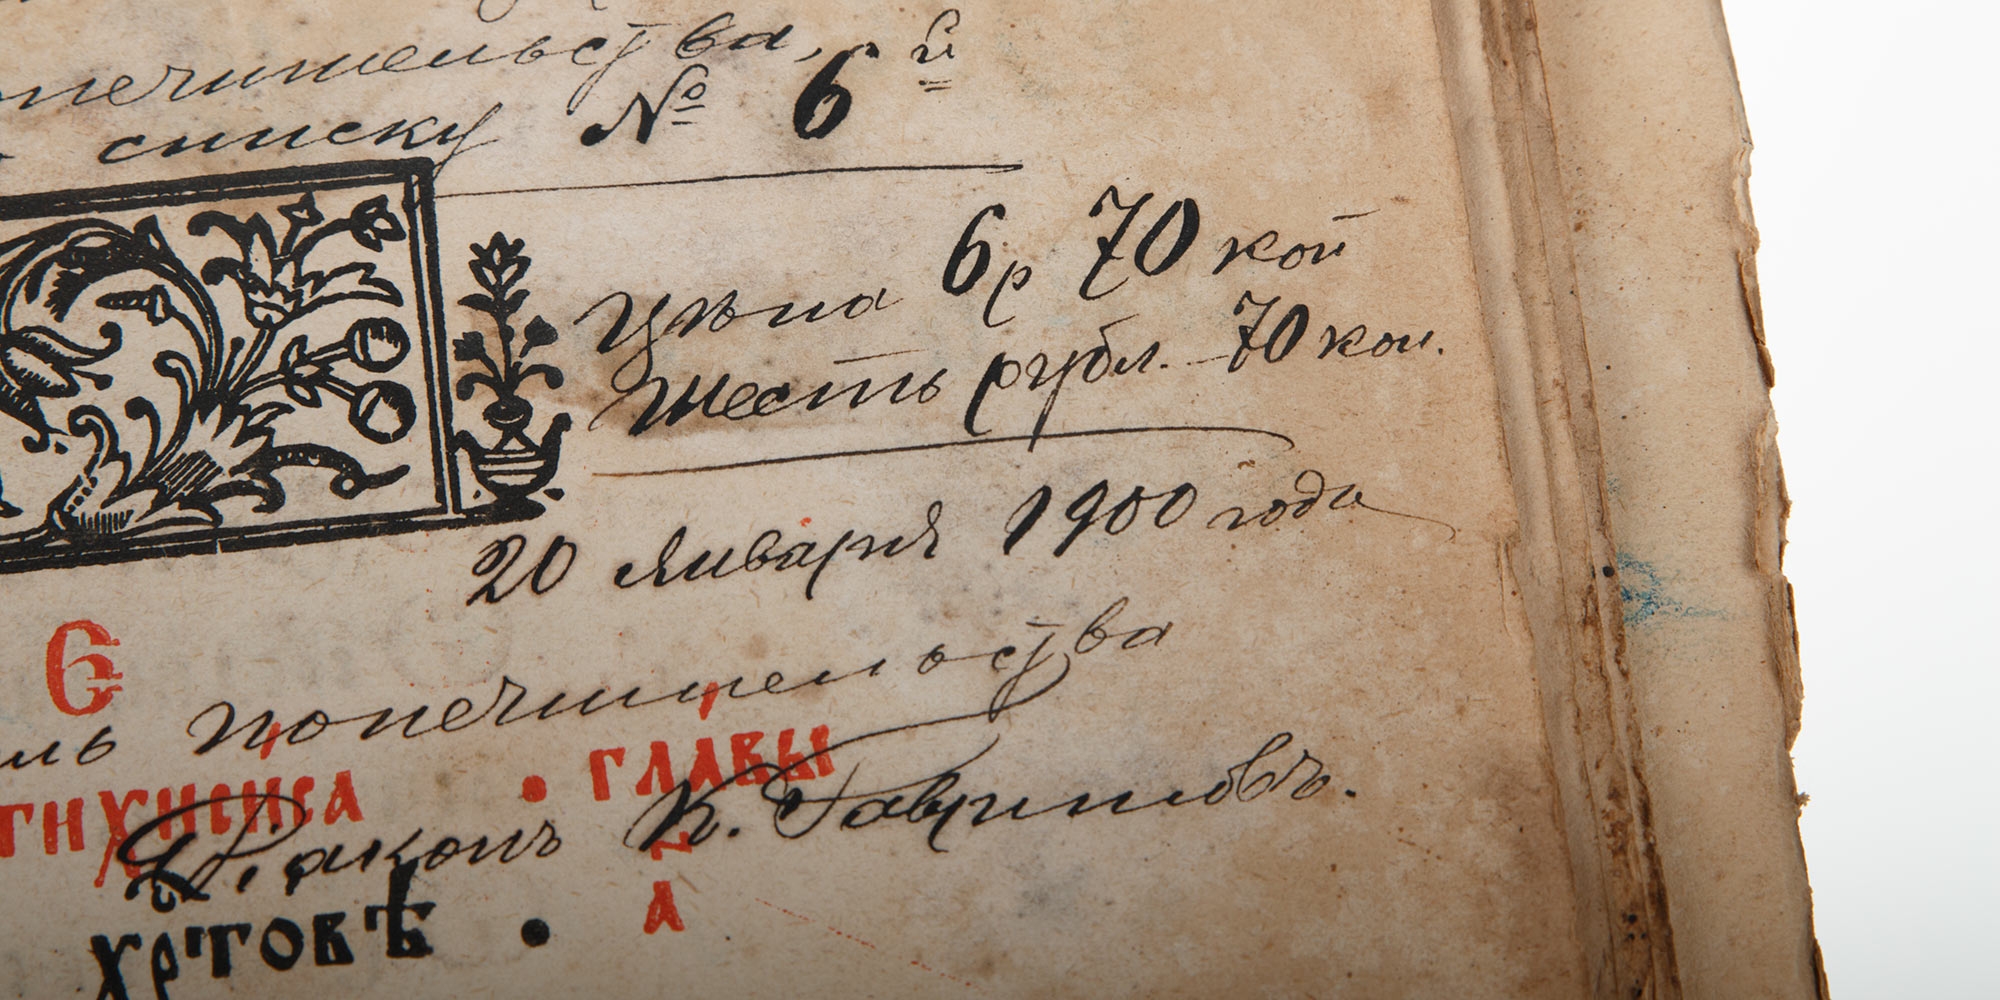 попечительства,
списку № 6й
Цѣна 6р 70 коп
Шесть рубл. 70 коп.
20 Января 1900 года
ль попечительства
ГЛАВЫ
Дiаконъ К. Гавриловъ.
ХРТОВѢ •
А